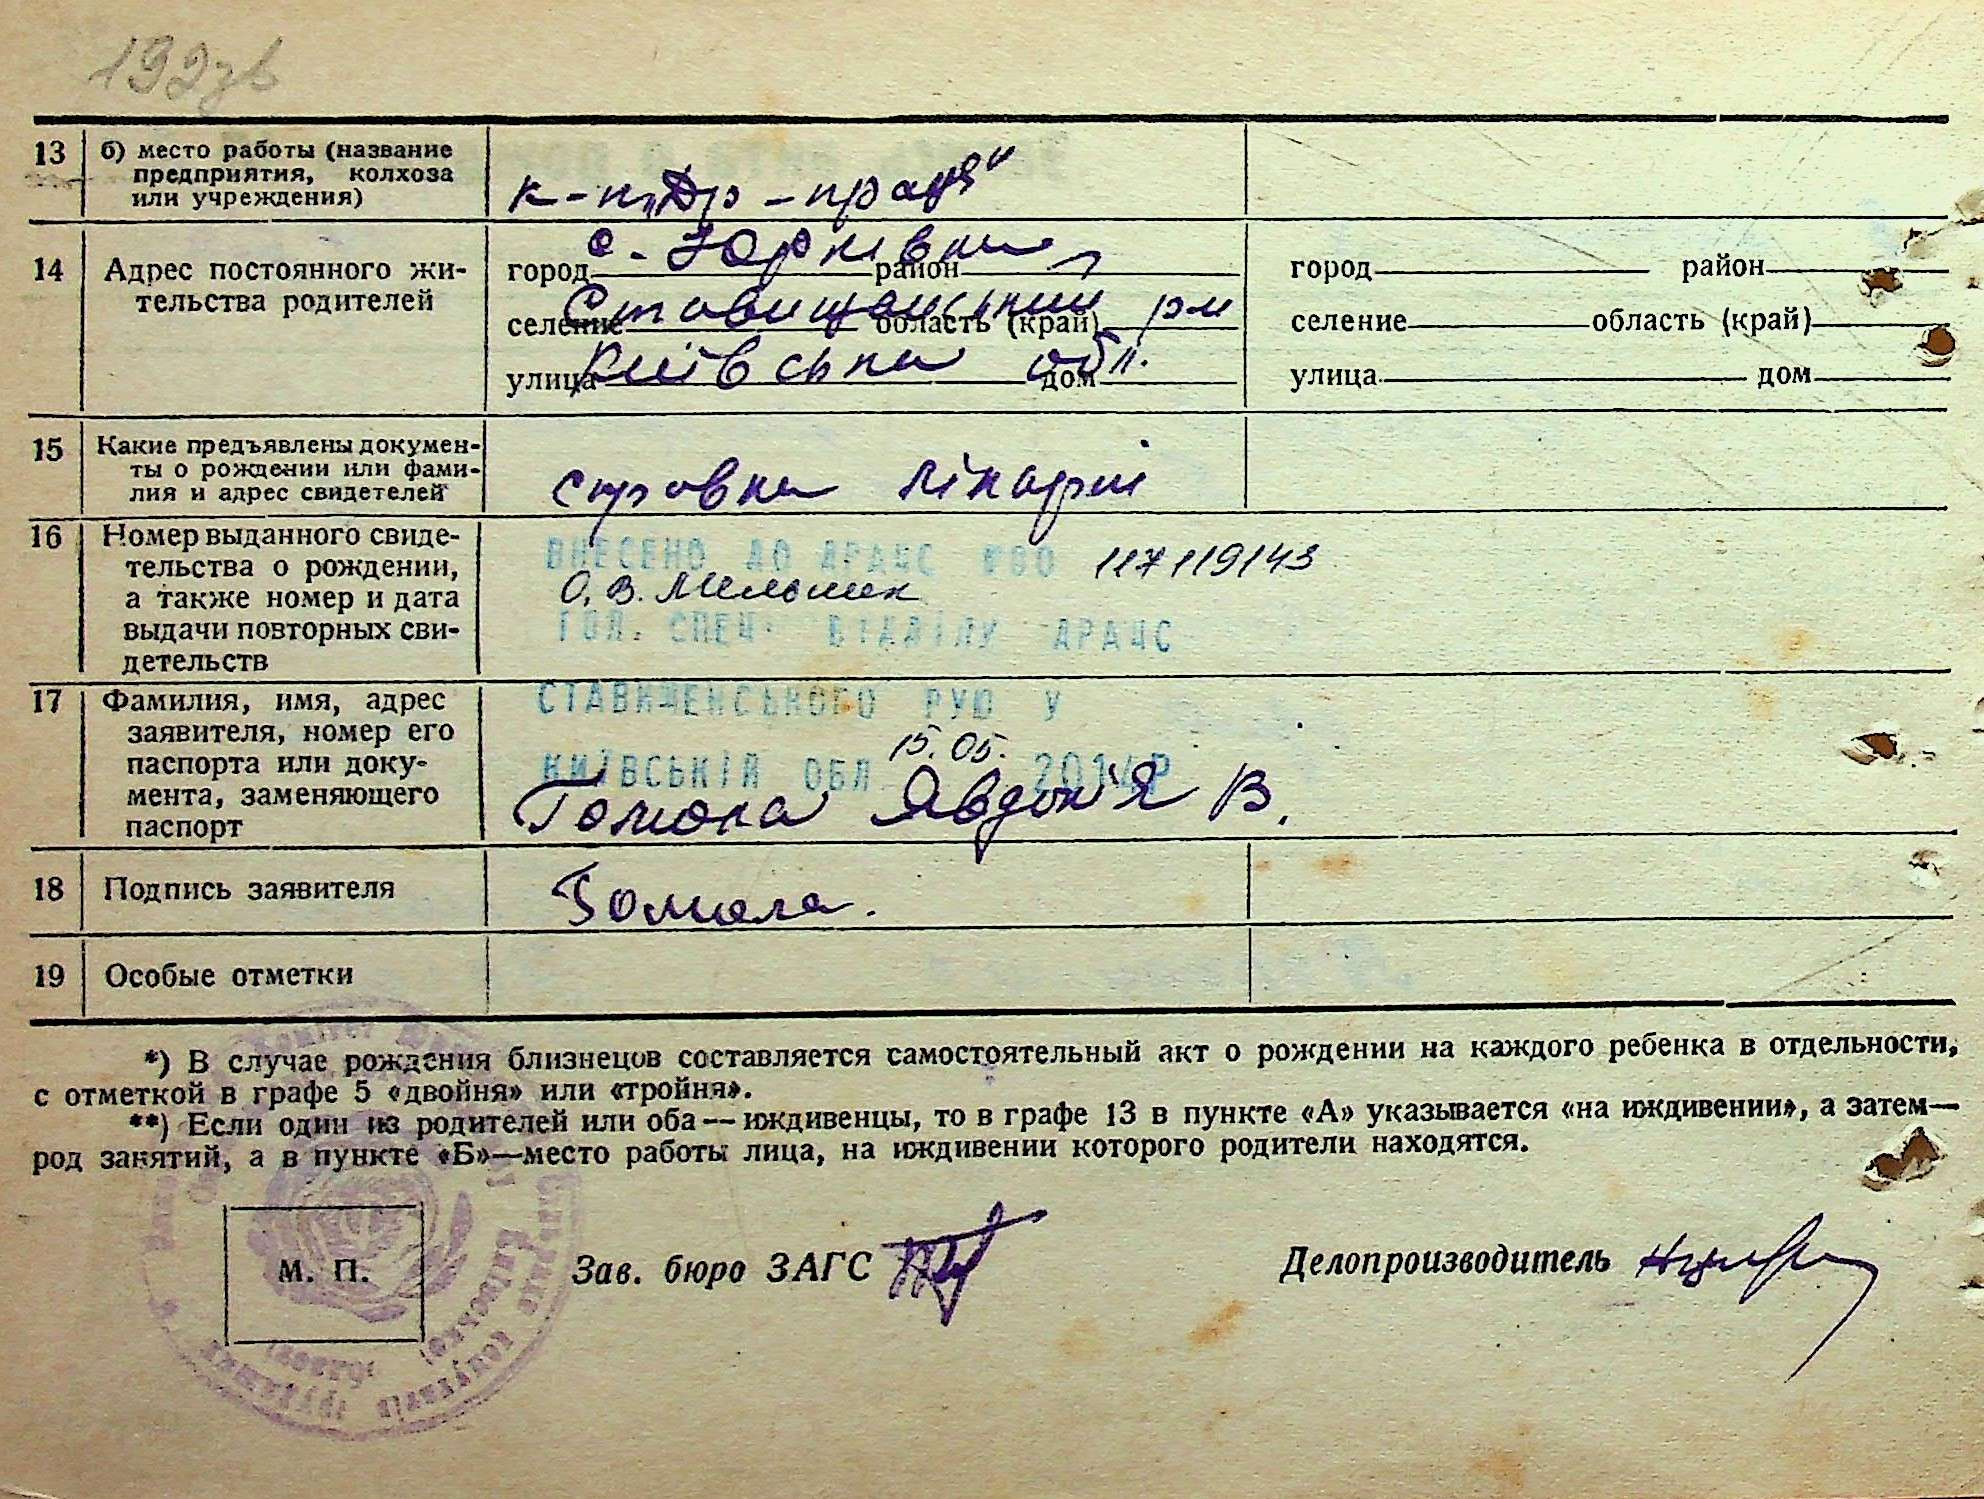 192зв
13 б) место работы (название
предприятия, колхоза
или учреждения)
к-п „Др-праця"
14 Адрес постоянного жи-
тельства родителей
с. Юрківка,
город район
Ставищанський р-н
селение область (край)
Київська обл.
улица дом
город район
селение область (край)
улица дом
15 Какие предъявлены докумен-
ты о рождении или фами-
лия и адрес свидетелей
справка лікарні
16 Номер выданного свиде-
тельства о рождении,
а также номер и дата
выдачи повторных сви-
детельств
ВНЕСЕНО ДО ДРАЦС 117119143
О.В. Мельник
ГОЛ. СПЕЦ. ВІДДІЛУ ДРАЦС
17 Фамилия, имя, адрес
заявителя, номер его
паспорта или доку-
мента, заменяющего
паспорт
СТАВИЩЕНСЬКОГО РУЮ У
КИЇВСЬКІЙ ОБЛ 15.05. 2014Р
Явдокія В.
18 Подпись заявителя
19 Особые отметки
*) В случае рождения близнецов составляется самостоятельный акт о рождении на каждого ребенка в отдельности,
с отметкой в графе 5 «двойня» или «тройня».
**) Если один из родителей или оба — иждивенцы, то в графе 13 в пункте «А» указывается «на иждивении», а затем—
род занятий, а в пункте «Б»—место работы лица, на иждивении которого родители находятся.
М. П.
Зав. бюро ЗАГС
Делопроизводитель